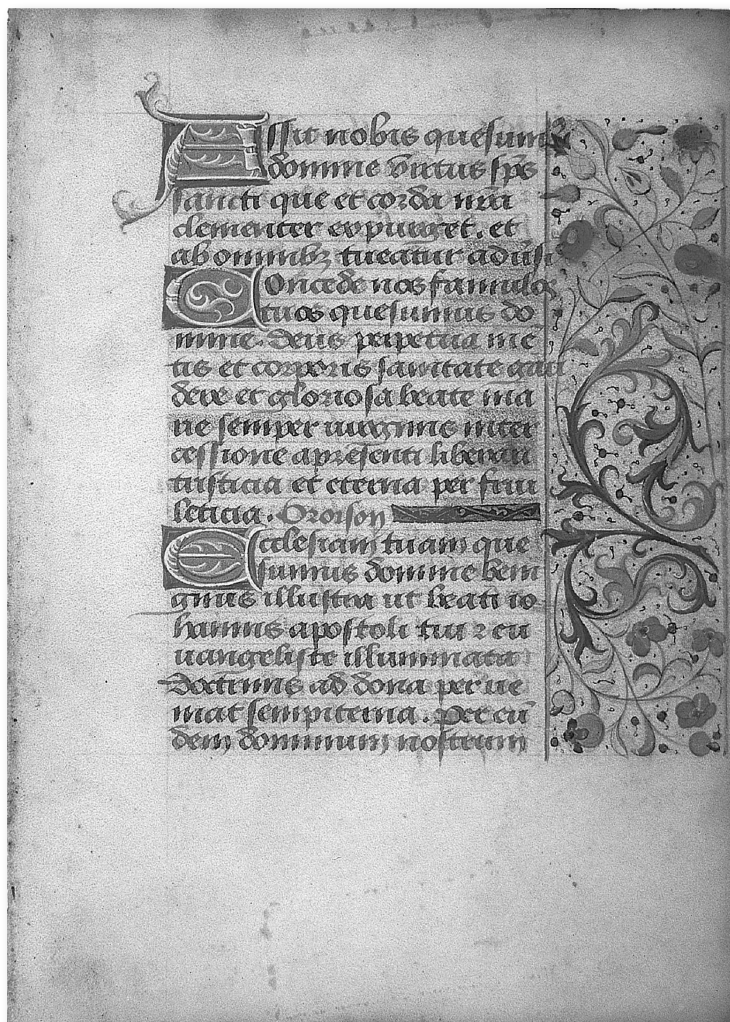 Assit nobis quesum̄
domine virtus sp̄s
sancti que et corda nr̄a
clementer expurget. et
ab omnibꝫ tueatur aduſ̄
Concede nos famulos
tuos quesumus do
mine. deus perpetua mē
tis et corporis sanitate gau
dere et gloriosa beate ma
rie semper uirginis inter
cessione apresenti liberari
tristicia et eterna per frui
leticia. Oroison
Ecclesiam tuam que
sumus domine beni
gnus illustra ut beati io
hannis apostoli tui ⁊ eu
uangeliste illuminata
doctrinis ad dona per ue
niat sempiterna. Per eū
dem dominum nostrum